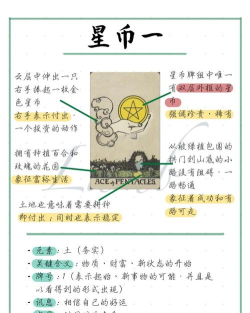 星币一
云层中伸出一只
右手捧起一枚金
色星币
右手表示付出,
一个投资的动作
拥有种植百合和
玫瑰的花园
象征富裕生活
星币牌组中唯一
有双层外框的星
币
强调珍贵、稀有
从被绿植包围的
拱门到山底的小
路没有阻碍,一
路畅通
象征着成功和有
路可走
ACE of PENTACLES
土地也意味着需要耕种
即付出;同时也表示稳定
· 元素:土(务实)
· 关键含义:物质、财富、新状态的开始
· 牌号:1(表示起始、新事物的可能,并且是
以看得到的形式出现)
· 讯息:相信自己的好运